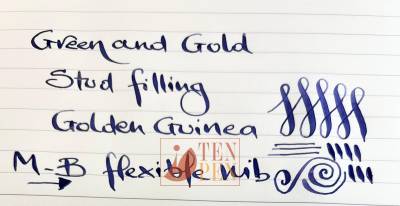 Green and Gold
Stud filling
Golden Guinea
M-B flexible nib
TEN
PEN